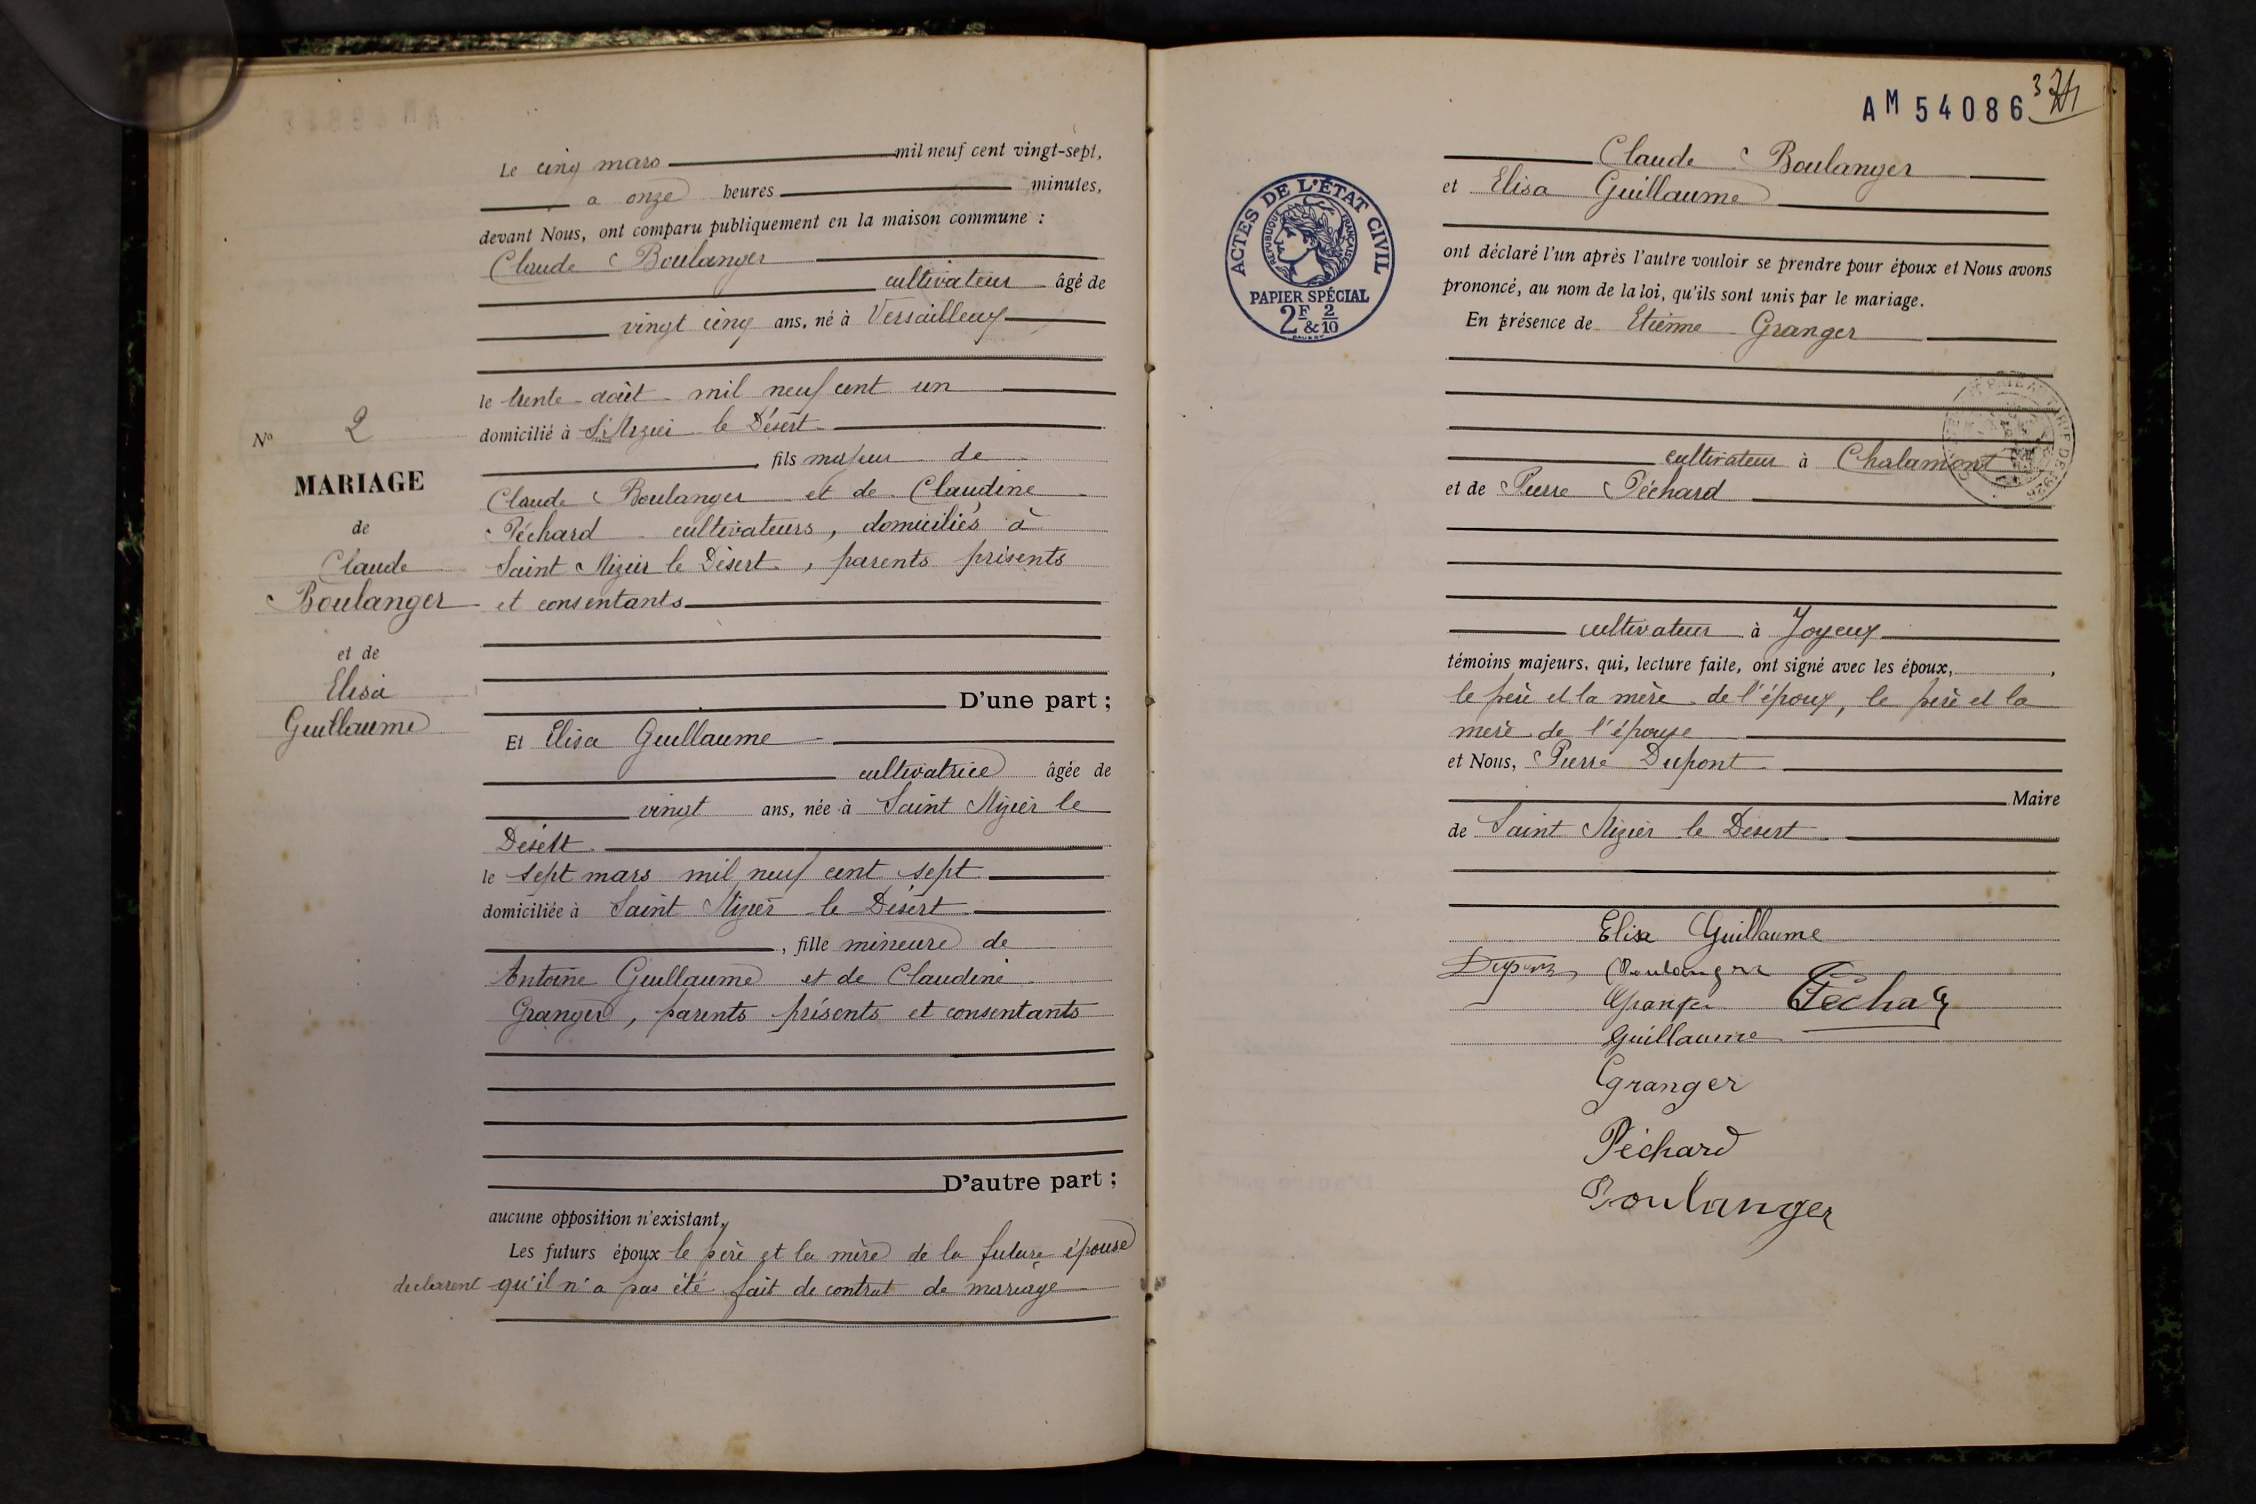 Le cinq mars mil neuf cent vingt-sept,
a onze heures minutes,
devant Nous, ont comparu publiquement en la maison commune :
Claude Boulanger
cultivateur âgé de
vingt cinq ans, né à Versailleux
le trente août mil neuf cent un
domicilié à St Nizier le Désert
fils majeur de
Claude Boulanger et de Claudine
Péchard cultivateurs, domiciliés à
Saint Nizier le Désert, parents présents
et consentants
D'une part ;
Nº 2
MARIAGE
de
Claude
Boulanger
et de
Elisa
Guillaume
Et Elisa Guillaume
cultivatrice âgée de
vingt ans, née à Saint Nizier le
Désert
le sept mars mil neuf cent sept
domiciliée à Saint Nizier le Désert
, fille mineure de
Antoine Guillaume et de Claudine
Granger, parents présents et consentants
D'autre part ;
aucune opposition n'existant,
Les futurs époux le père et la mère de la future épouse
declarent qu'il n'a pas été fait de contrat de mariage
AM 54086
Claude Boulanger
et Elisa Guillaume
ont déclaré l'un après l'autre vouloir se prendre pour époux et Nous avons
prononcé, au nom de la loi, qu'ils sont unis par le mariage.
En présence de Etienne Granger
cultivateur à Chalamont
et de Pierre Péchard
cultivateur à Joyeux
témoins majeurs, qui, lecture faite, ont signé avec les époux,
le père et la mère de l'époux, le père et la
mère de l'épouse
et Nous, Pierre Dupont
Maire
de Saint Nizier le Désert
ACTES DE L'ÉTAT CIVIL
RÉPUBLIQUE FRANÇAISE
PAPIER SPÉCIAL
2F & 2/10
Elisa Guillaume
Dupont Boulanger
Granger Pécha
Guillaume
Granger
Péchard
Boulanger